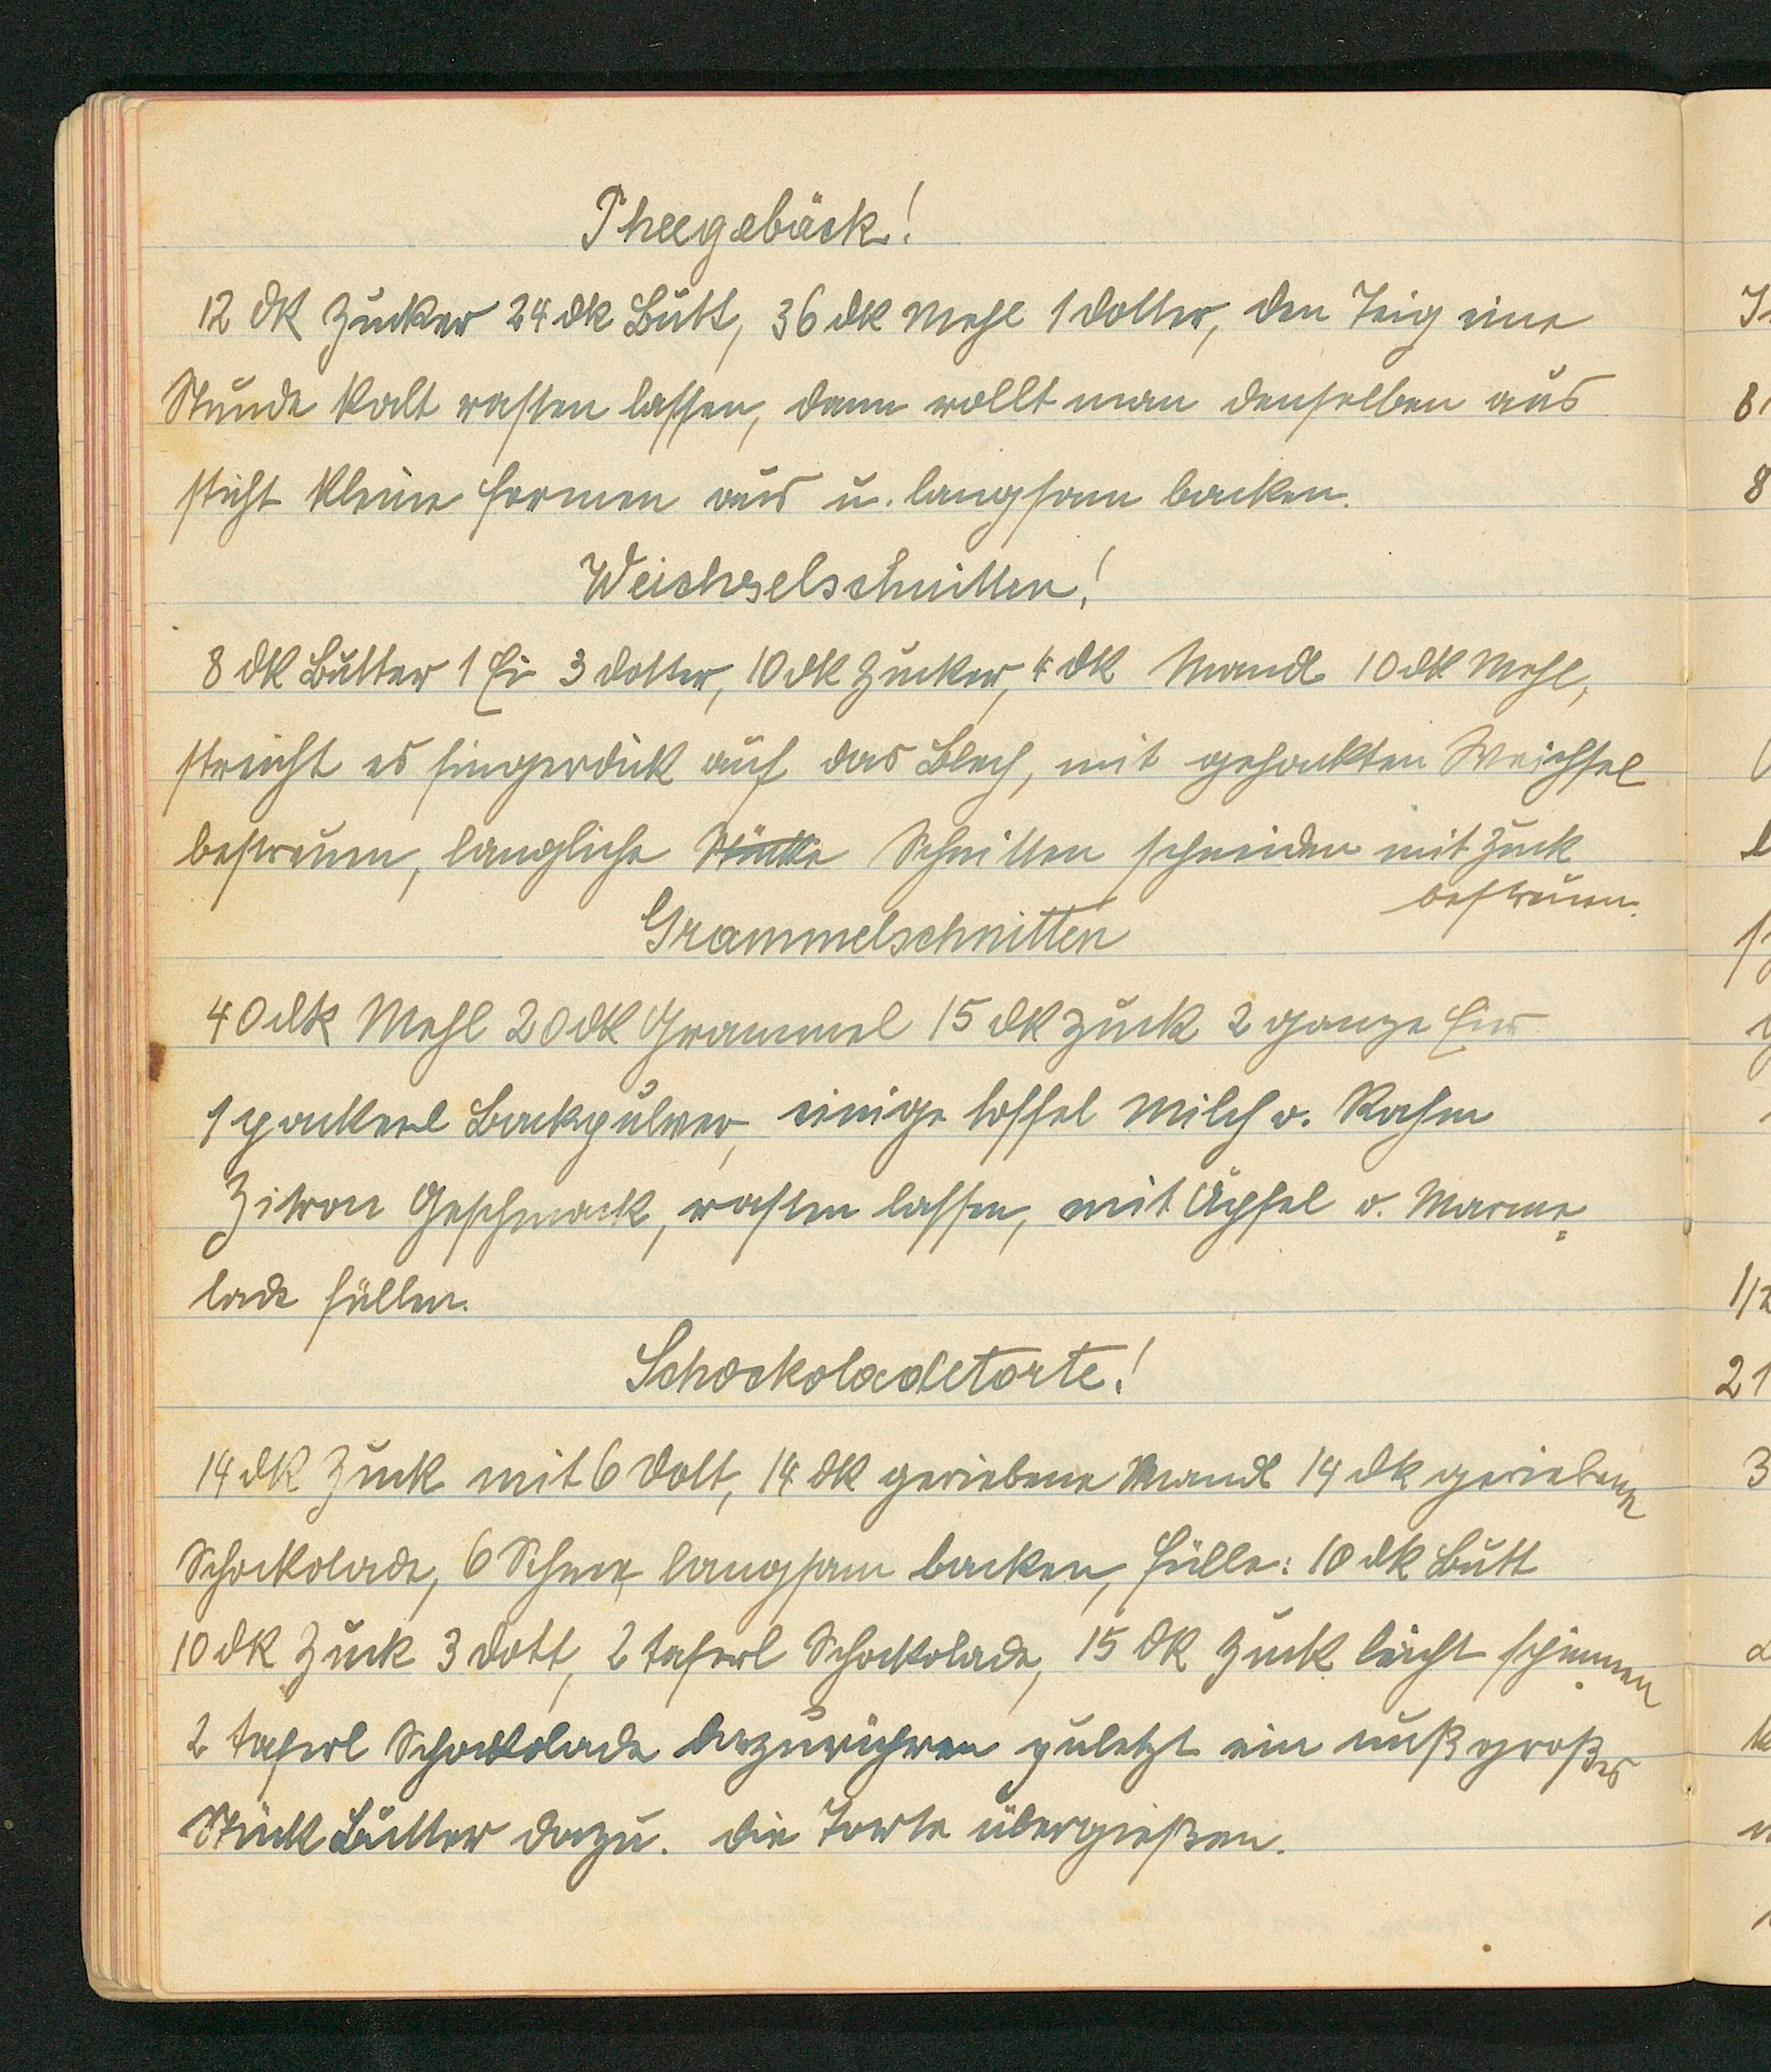 Theegebäck!
12 dk Zucker 24 dk Butt, 36 dk Mehl 1 Dotter, den Teig eine
Stunde kalt rasten lassen, dann rollt man denselben aus
sticht kleine Formen aus u. langsam backen.
Weichselschnitten!
8 dk Butter 1 Ei 3 Dotter, 10 dk Zucker, 4 dk Mandl 10 dk Mehl,
streicht es fingerdick auf das Blech, mit gehackten Weichsel
bestreuen, langliche Stücke Schnitten schneiden mit Zuck
bestreuen.
Grammelschnitten
40 dk Mehl 20 dk Grammel 15 dk Zuck 2 ganze Eier
1 packerl Backpulver, einige löffel Milch o. Rahm
Zitron Geschmack, rasten lassen, mit Äpfel o. Marme=
lade füllen.
Schockoladetorte!
14 dk Zuck mit 6 Dott, 14 dk geriebene Mandl 14 dk geriebene
Schockolade, 6 Schnee langsam backen, Fülle: 10 dk Butt
10 dk Zuck 3 Dott, 2 Taferl Schockolade, 15 dk Zuck leicht spinnen
2 Taferl Schockolade dazurühren zuletzt ein nußgroßes
Stück Butter dazu. die Torte übergießen.